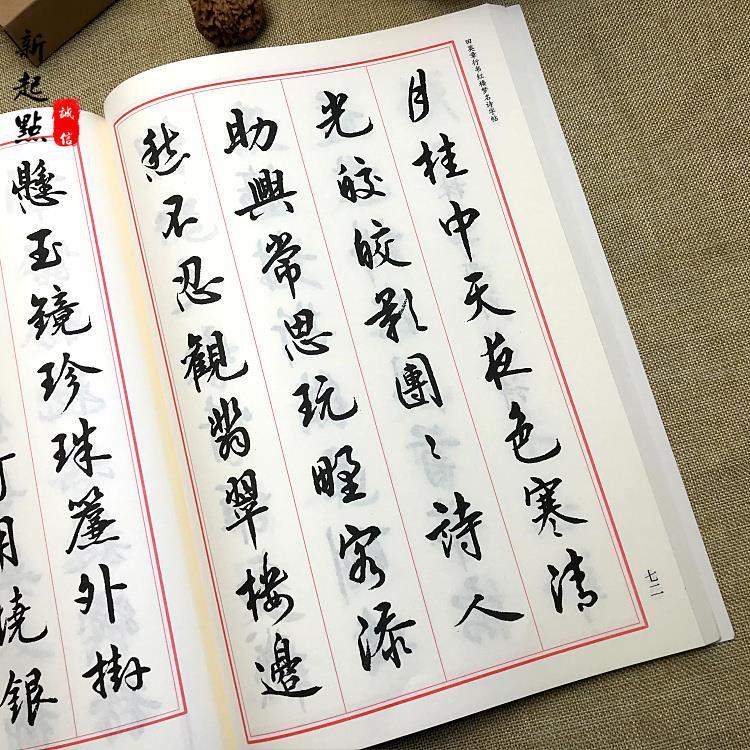 新起點
誠信
田英章行书红楼梦名诗字帖
月桂中天夜色寒清
光皎皎影團〻詩人
助興常思玩野客添
愁不忍觀翡翠樓邊
七二
懸玉鏡珍珠簾外掛
用燒銀